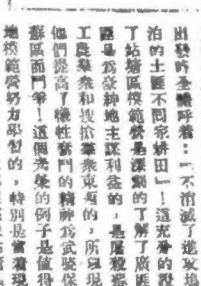 出發時全體呼着：「不消滅了進攻塢
泊的土匪不回家耕田」！這充分的說
了站塘區模範營是深刻的了解了廣匪
團是為豪紳地主謀利益的，是屠殺
工農羣衆和搜搶羣衆東西的，所以現
他們提高了犧牲奮鬥的精神為武裝保
蘇區而鬥爭！這個光榮的例子是值得
地模範營努力學習的，特別是當着現